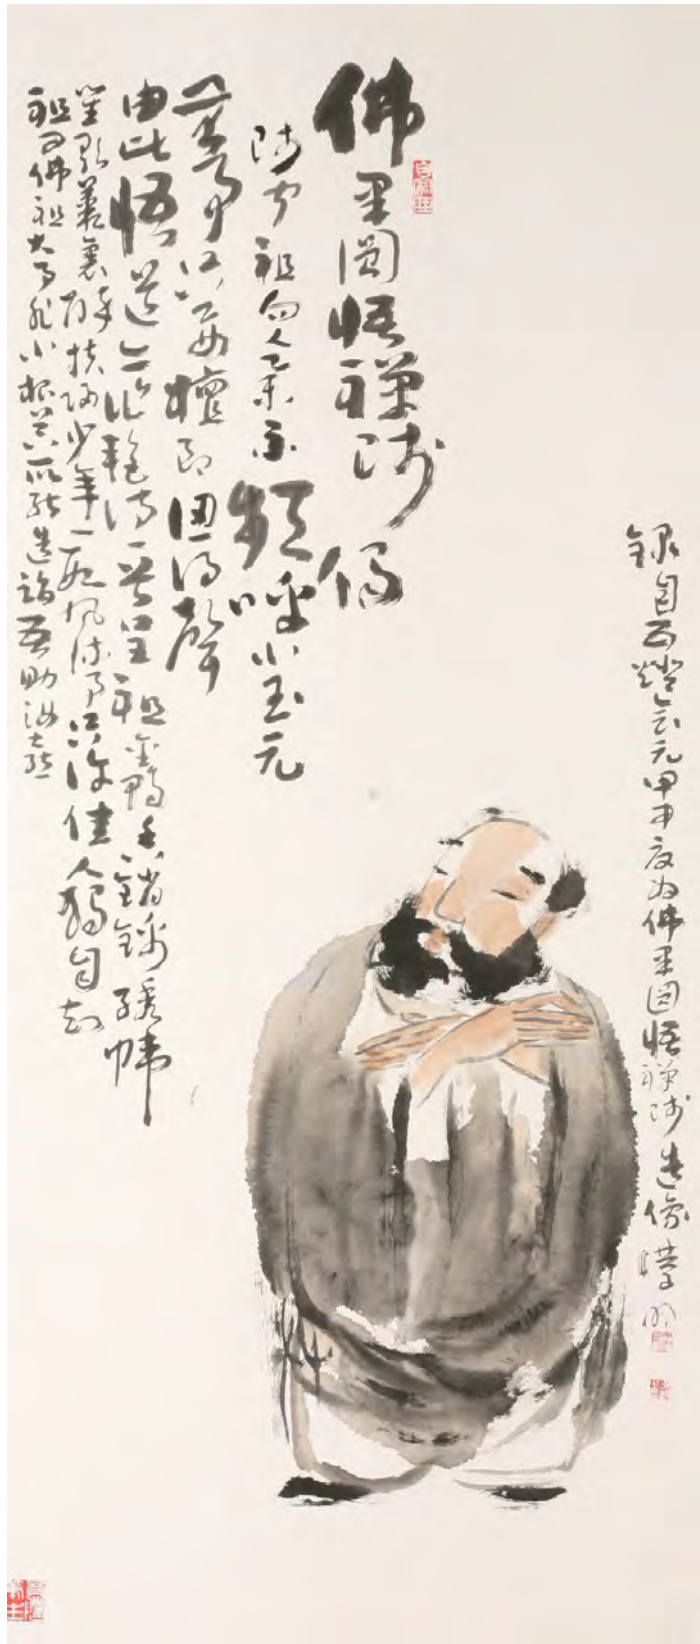 佛果圜悟禪師偈
師 祖向人 頻呼小玉元
無事只要檀郎 得聲
由此悟道 作艷詩一首呈祖金鴨香銷錦綉幃
笙歌叢裏醉扶歸少年一段風流事只許佳人獨自知
祖曰佛祖大事非小根 所能造詣吾助汝喜
錄自五燈會元甲申夏为佛果圜悟禪師造像